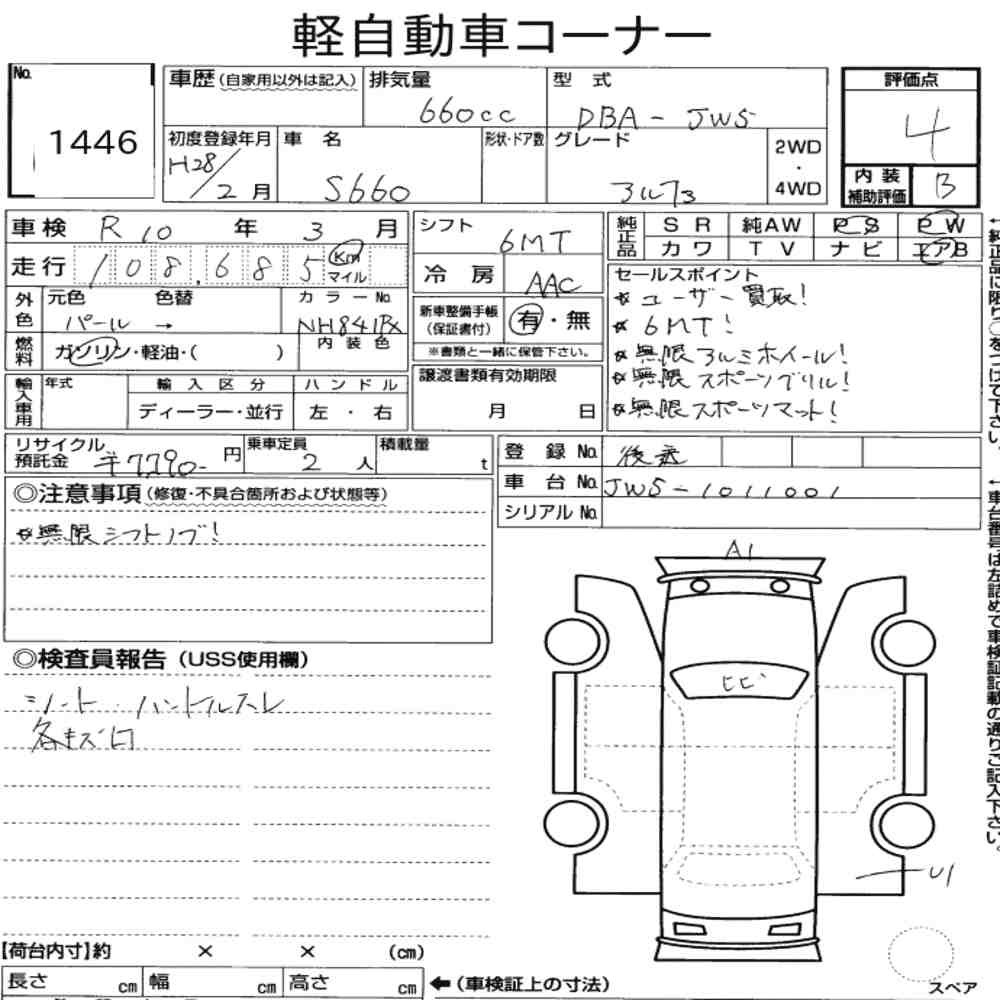 軽自動車コーナー
No. 1446
車歴 (自家用以外は記入)
排気量 660cc
型 式 DBA - JW5
評価点 4
初度登録年月 H28/2月
車 名 S660
形状・ドア数
グレード アルファ
2WD ・ 4WD
内装補助評価 B
車検 R 10 年 3 月
走行 108,685 Km マイル
シフト 6MT
冷房 AAC
純正品 SR 純AW PS PW
カワ TV ナビ エアB
外色 元色 パール → 色替
カラーNo. NH841PX
内装色
燃料 ガソリン・軽油・( )
新車整備手帳 (保証書付) 有・無
※書類と一緒に保管下さい。
セールスポイント
☆ ユーザー買取!
☆ 6MT!
☆ 無限アルミホイール!
☆ 無限スポーツグリル!
☆ 無限スポーツマット!
輸入車用 年式 輸入区分 ハンドル
ディーラー・並行 左・右
譲渡書類有効期限
月 日
リサイクル預託金 ¥7290- 円
乗車定員 2人
積載量 t
登録No. 後送
車台No. JW5-1011001
シリアルNo.
◎注意事項 (修復・不具合箇所および状態等)
☆無限シフトノブ!
◎検査員報告 (USS使用欄)
シート・ハンドルスレ
各キズ凹
A1
ヒビ
U1
スペア
【荷台内寸】約 × × (cm)
長さ cm 幅 cm 高さ cm
←(車検証上の寸法)
←純正品に限り○をつけて下さい。
←車台番号は左詰めで車検証記載の通りご記入下さい。